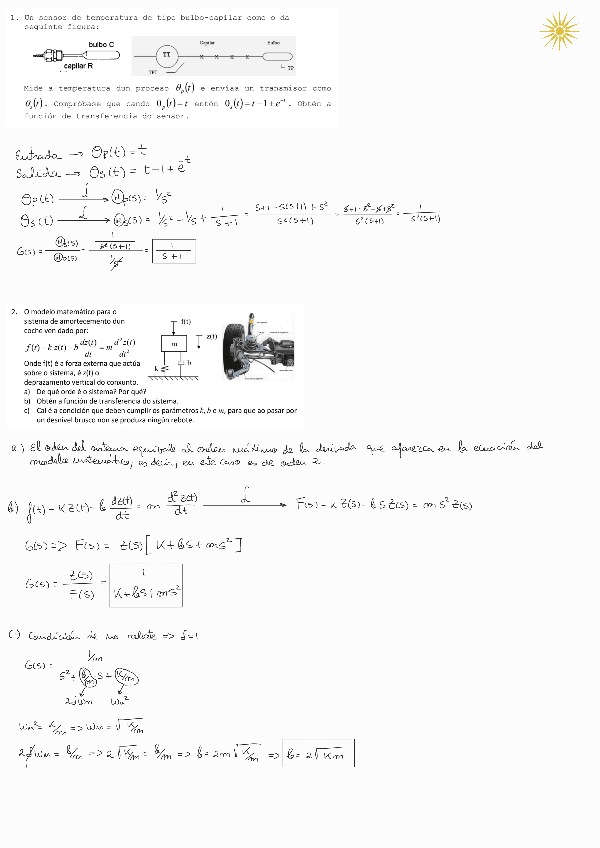 1. Un sensor de temperatura de tipo bulbo-capilar como o da
seguinte figura:
bulbo C
capilar R
TT
Capilar
Bulbo
Mide a temperatura dun proceso θp(t) e envíaa un transmisor como
θs(t). Compróbase que cando θp(t)=t entón θs(t)=t-1+e^-t. Obtén a
función de transferencia do sensor.
Entrada → Θp(t) = t
Salida → Θs(t) = t-1+e^-t
Θp(t) → L → Θp(s) = 1/s²
Θs(t) → L → Θs(s) = 1/s² - 1/s + 1/(s+1) = (s+1-s(s+1)+s²)/(s²(s+1)) = (s+1-s²-s+s²)/(s²(s+1)) = 1/(s²(s+1))
G(s) = Θs(s)/Θp(s) = (1/(s²(s+1)))/(1/s²) = 1/(s+1)
2. O modelo matemático para o
sistema de amortecemento dun
coche ven dado por:
f(t) - k z(t) - b dz(t)/dt = m d²z(t)/dt²
Onde f(t) é a forza externa que actúa
sobre o sistema, é z(t) o
deprazamento vertical do conxunto.
f(t)
m
z(t)
k
b
a) De qué orde é o sistema? Por qué?
b) Obtén a función de transferencia do sistema.
c) Cal é a condición que deben cumplir os parámetros k, b e m, para que ao pasar por
un desnivel brusco non se produza ningún rebote.
a) El orden del sistema equivale al orden máximo de la derivada que aparezca en la ecuación del
modelo matemático, es decir, en este caso es de orden 2.
b) f(t) - K z(t) - b dz(t)/dt = m d²z(t)/dt → L → F(s) - K Z(s) - b s Z(s) = m s² Z(s)
G(s) => F(s) = Z(s) [K + bs + ms²]
G(s) = Z(s)/F(s) = 1/(K + bs + ms²)
c) Condición de no rebote => ξ=1
G(s) = (1/m)/(s² + (b/m)s + (K/m))
2ξωn ωn²
ωn² = K/m => ωn = √(K/m)
2ξωn = b/m => 2√(K/m) = b/m => b = 2m√(K/m) => b = 2√(Km)